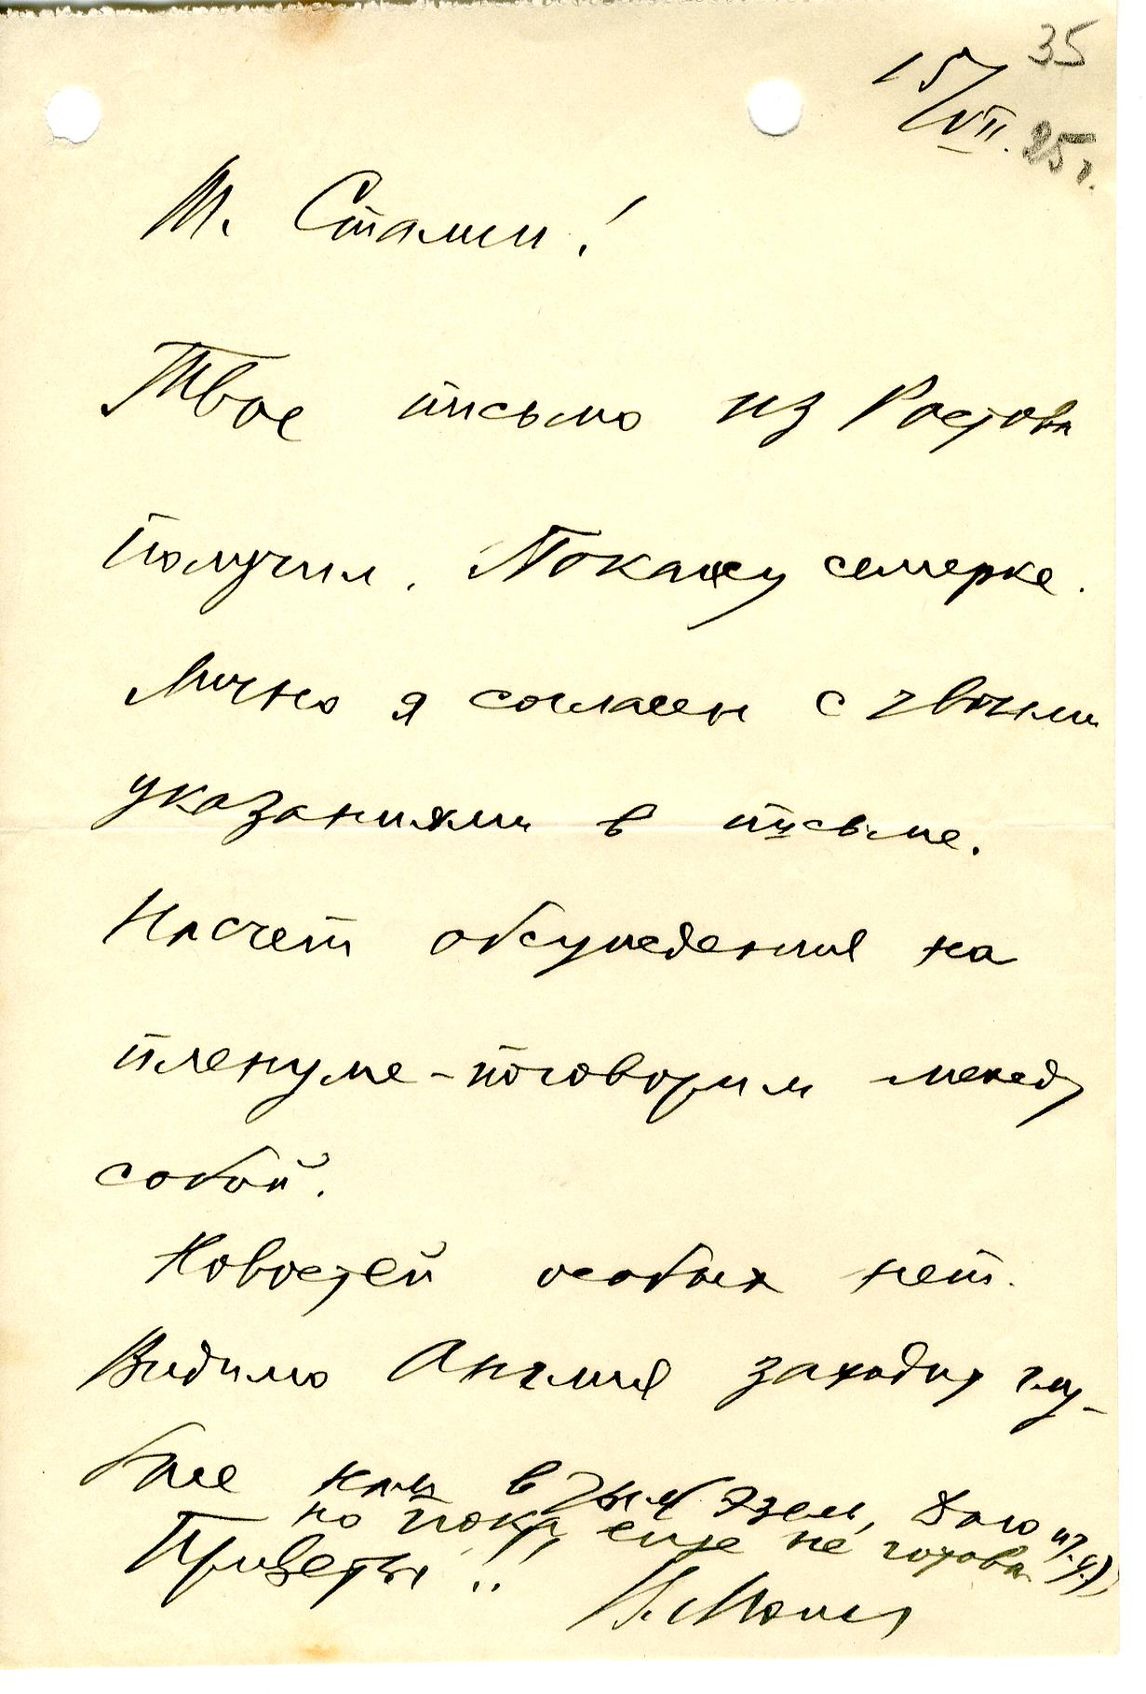 35
15/VII. 25г.
Т. Сталин!
Твое письмо из Ростова
получил. Покажу семерке.
Лично я согласен с твоими
указаниями в письме.
Насчет обсуждения на
пленуме - поговорим между
собой.
Новостей особых нет.
Видимо Англия заходит глу-
бже нам в
но пока еще не готова
Приветы!!